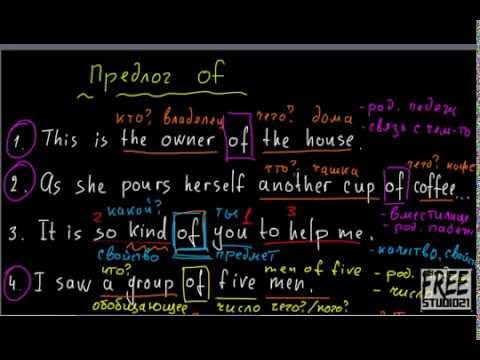 Предлог of
кто? владелец чего? дома - род. падеж
- связь с чем-то
1. This is the owner of the house.
что? чашка чего? кофе
2. As she pours herself another cup of coffee...
- вместилище
2 какой? ты 1 3 - род. падеж
3. It is so kind of you to help me.
свойство предмет - качество, свой
кто? men of five - род.
4. I saw a group of five men. - числ
обобщающее число чего?/кого?
FREE
STUDIO21